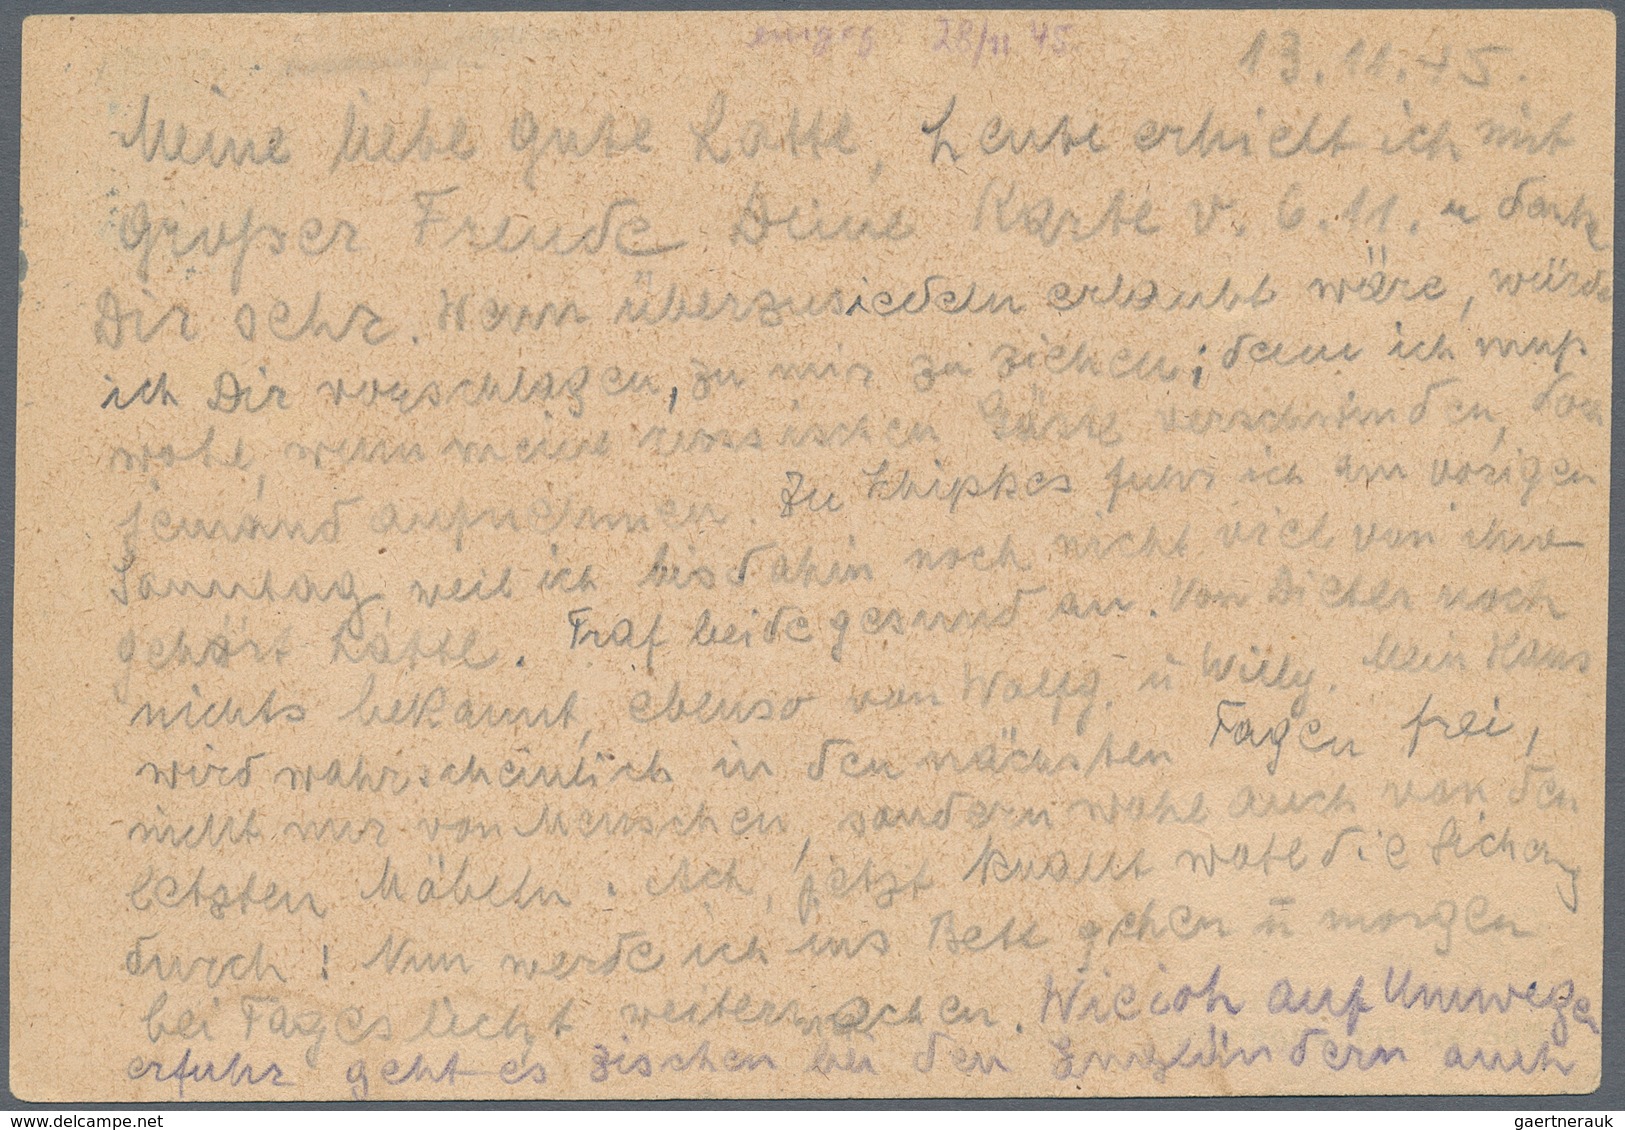 eingeg 28/11 45
13.11.45.
Meine liebe gute Lotte, heute erhielt ich mit
großer Freude Deine Karte v. 6.11. u danke
Dir sehr. Wenn überzusiedeln erlaubt wäre, würde
ich Dir vorschlagen, zu mir zu ziehen; denn ich muß
wohl, wenn meine russischen Gäste verschwinden, doch
jemand aufnehmen. Zu fuhr ich am vorigen
Sonntag, weil ich bis dahin noch nicht viel von ihnen
gehört hatte. Traf beide gesund an. Von Dieter noch
nichts bekannt, ebenso von Wolfg. u Willy. Mein Haus
wird wahrscheinlich in den nächsten Tagen frei,
nicht nur von Menschen, sondern wohl auch von den
letzten Möbeln. Ach, jetzt knallt wohl die Sicherung
durch! Nun werde ich ins Bett gehen u morgen
bei Tageslicht weitermachen. Wie ich auf Umwegen
erfuhr geht es zischen bei den Engländern auch
gaertnerauk.com